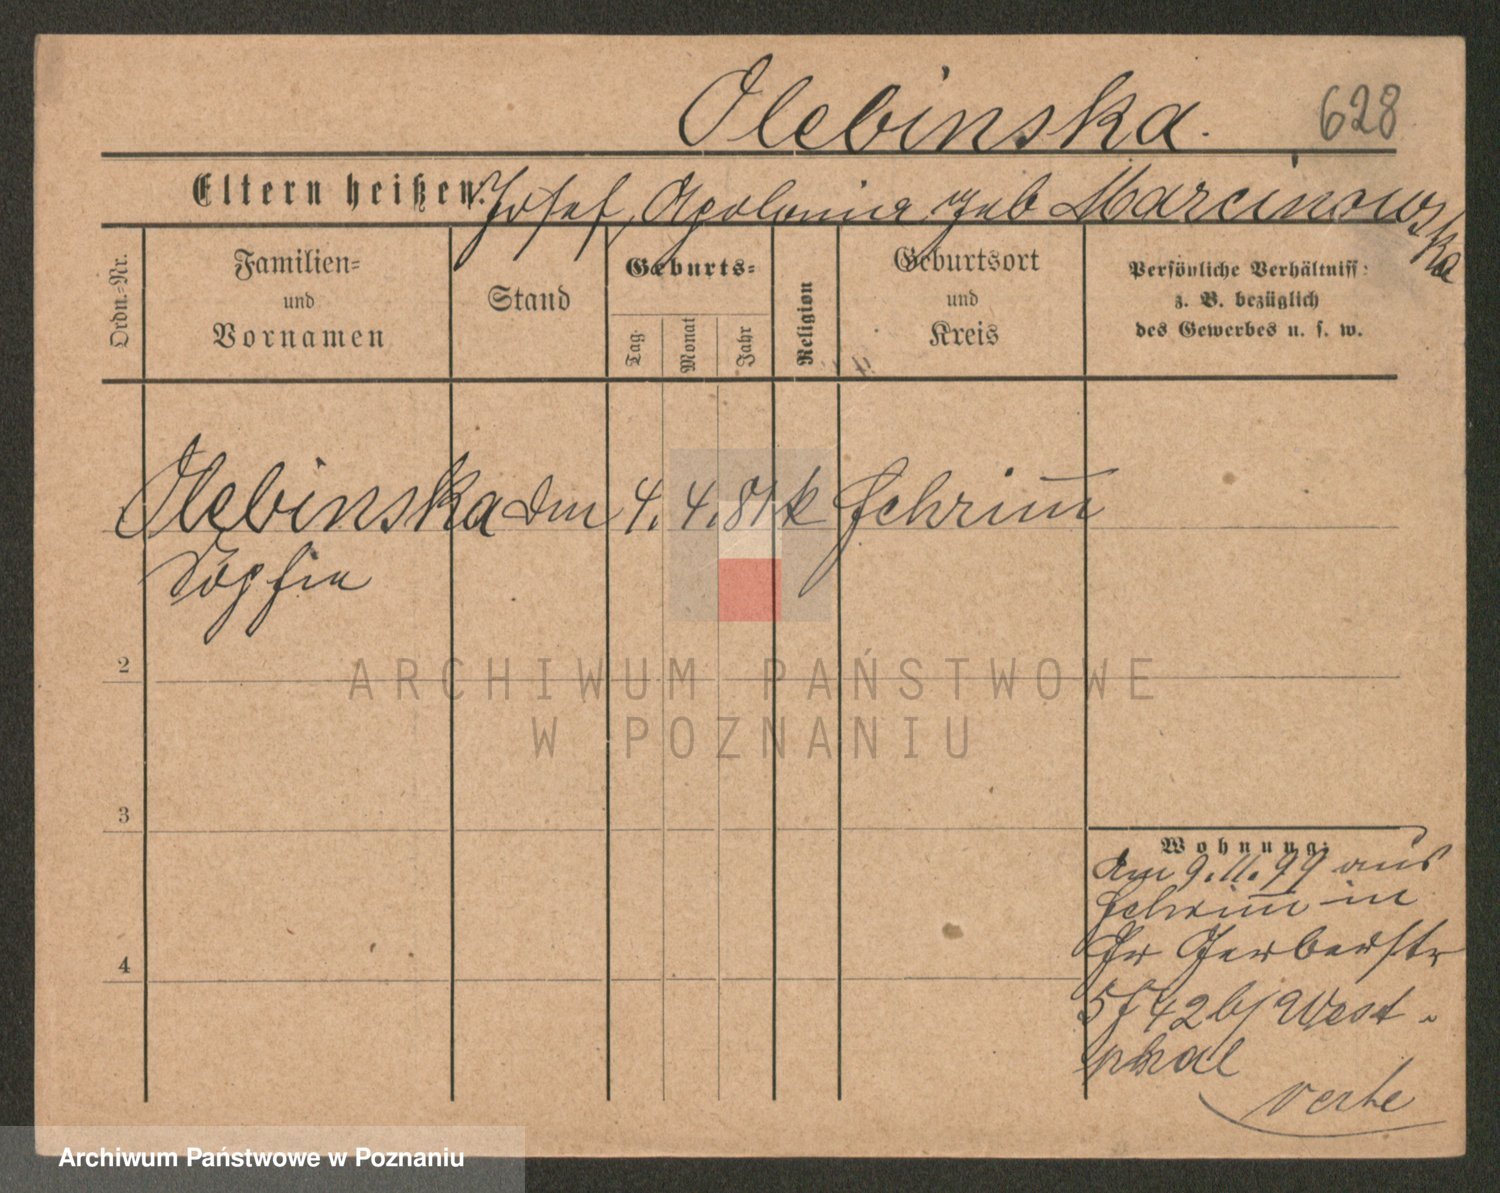 Olebinska. 628
Eltern heißen: Josef, Apolonia geb Marcinowska
Ordn.-Nr.
Familien-
und
Vornamen
Stand
Geburts-
Tag.
Monat
Jahr
Religion
Geburtsort
und
Kreis
Persönliche Verhältniss:
z. B. bezüglich
des Gewerbes u. s. w.
Olebinska 4. 4. 81 k Schrim̅
Sophia
2
ARCHIWUM PAŃSTWOWE
W POZNANIU
3
Wohnung:
am 9.11.99 aus
Schrim̅ in
Gr Gerberstr
42 b/ West-
phal
verte
4
Archiwum Państwowe w Poznaniu